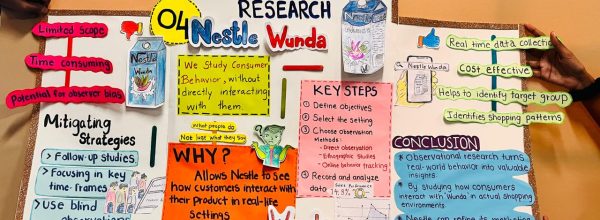 RESEARCH
04
Nestle Wunda
Limited Scope
Time consuming
Potential for observer bias
Nestle
Wunda
Mitigating
Strategies
> Follow-up studies
> Focusing in key
time-frames
> Use blind
We Study Consumer
Behavior, without
directly interacting
with them.
What people do
Not just what they say
WHY?
Allows Nestle to see
how customers interact with
their product in real-life
settings
KEY STEPS
① Define objectives
② Select the setting
③ Choose observation
methods:
- Direct observation
- Ethnographic studies
- Online behavior tracking
④ Record and analyze
data
Real time data collection
Cost effective
Helps to identify target group
Identifies shopping patterns
Nestle Wunda
CONCLUSION
Observational research turns
real-world behavior into valuable
insights.
By studying how consumers
interact with Wunda in actual shopping
environments,